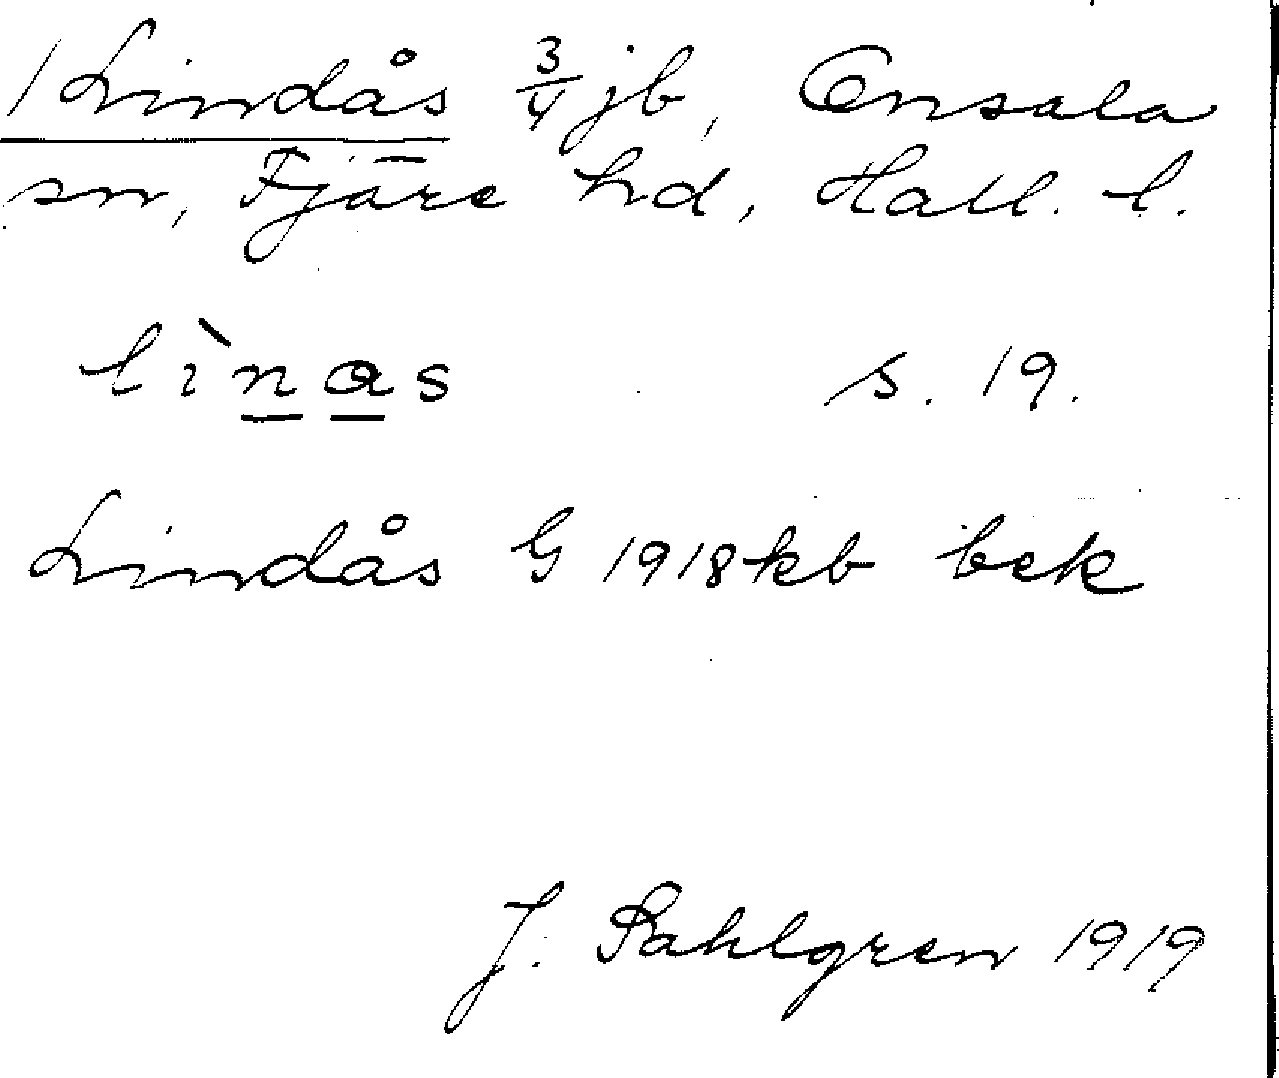 1 Lindås 3/4 jb, Onsala
sn, Fjäre hd, Hall. l.
lìnas s. 19.
Lindås G 1918 kb bek
J. Sahlgren 1919